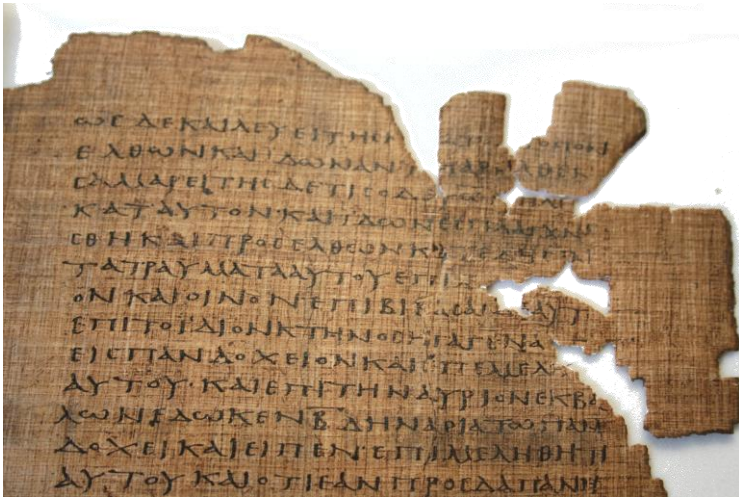 ωϲ δε και λευειτηϲ
ελθων και ϊδων αντιπαρηλθεν
ϲαμαρειτηϲ δε τιϲ οδευων
κατ αυτον και ϊδων εϲπλαγχνι
ϲθη και προϲελθων κατεδηϲεν
τα τραυματα αυτου επι
ον και οινον επιβιβαϲαϲ δε αυτ
επι το ϊδιον κτηνοϲ ηγαγεν α
ειϲ πανδοχειον και επεμελη
αυτου· και επι την αυριον εκβα
λων εδωκεν β̅ δηναρια τω παν
δοχει και ειπεν· επιμεληθητι
αυτου και οτι εαν προϲδαπανη